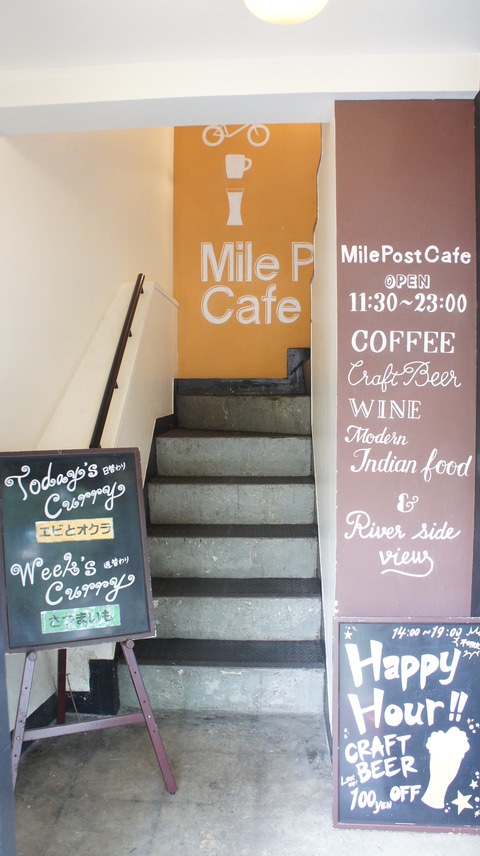 Mile P
Cafe
MilePostCafe
OPEN
11:30~23:00
COFFEE
Craft Beer
WINE
Modern
Indian food
&
River side
view
Today's 日替わり
Curry
エビとオクラ
Week's 週替わり
Curry
さつまいも
14:00~19:00
Happy
Hour!!
CRAFT
BEER
100yen OFF